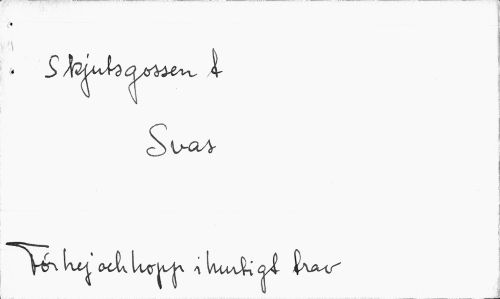 Skjutsgossen t
Svas
För hej och hopp i hurtigt trav